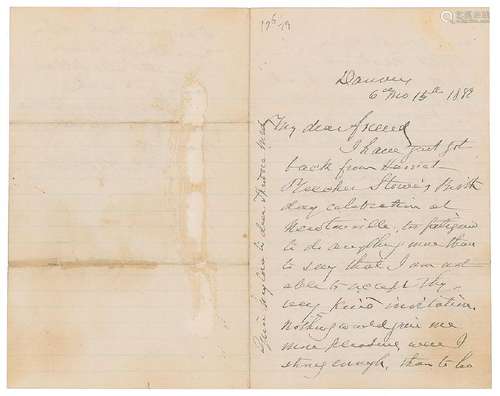 Danvers
6th Mo 15th 1882
My dear friend
I have just got
back from Harriet
Beecher Stowe's Birth
day celebration at
Newtonville, too fatigued
to do anything more than
to say that I am not
able to accept thy
very kind invitation.
Nothing would give me
more pleasure, were I
strong enough, than to be
to dear